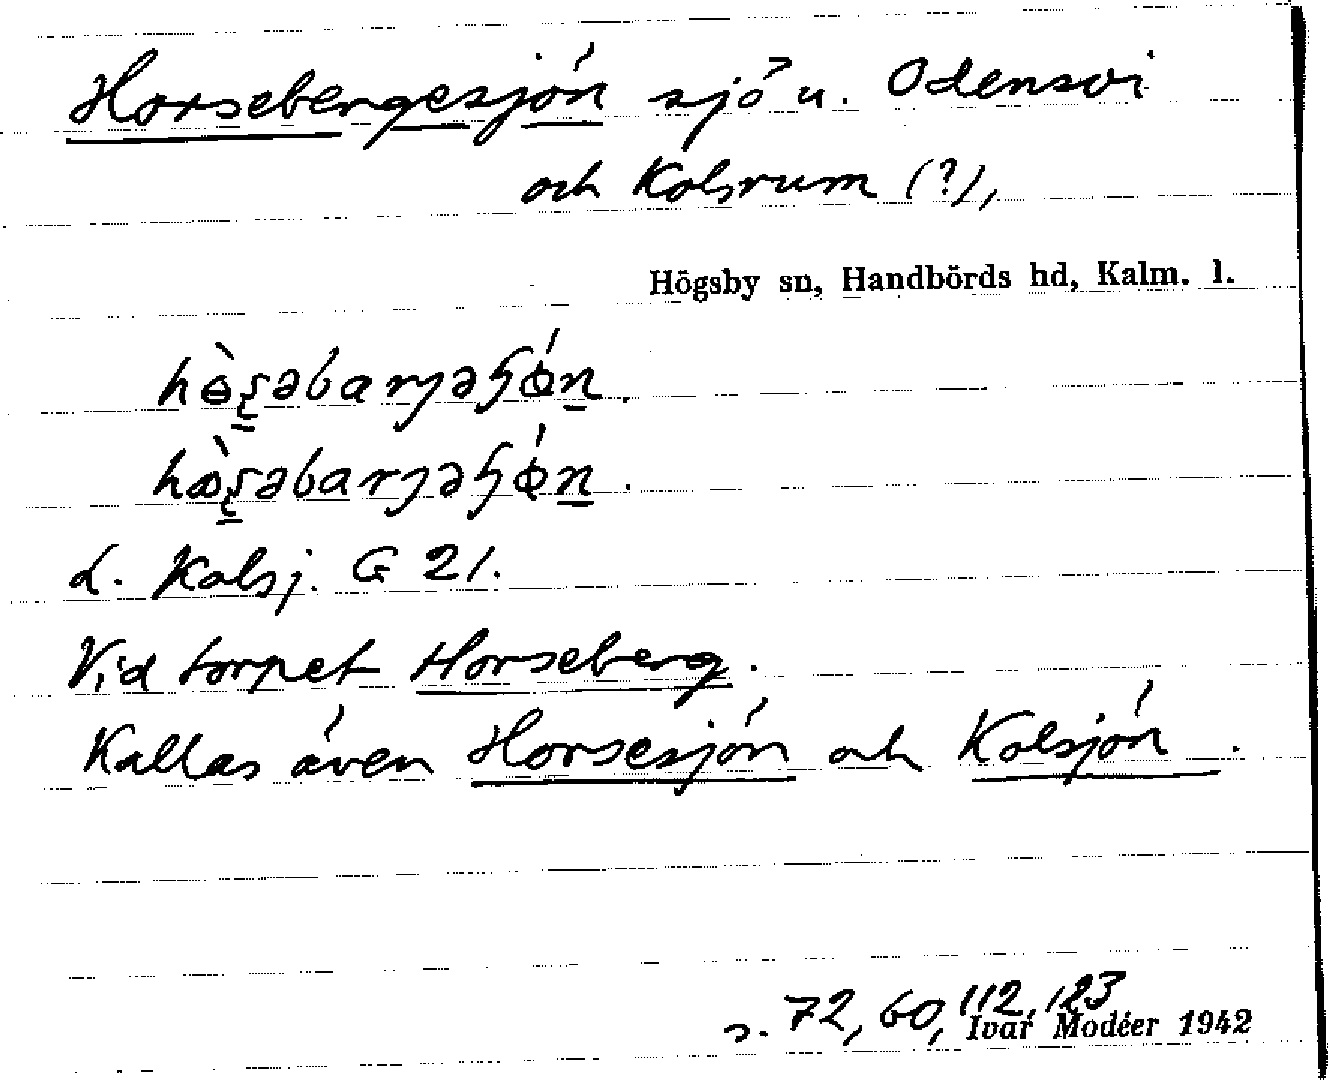 Horsebergesjön sjö u. Odensvi
och Kolsrum (?),
Högsby sn, Handbörds hd, Kalm. l.
L. Kolsj. G 21.
Vid torpet Horseberg.
Kallas även Horsesjön och Kolsjön.
s. 72, 60, 112, 123
Ivar Modéer 1942